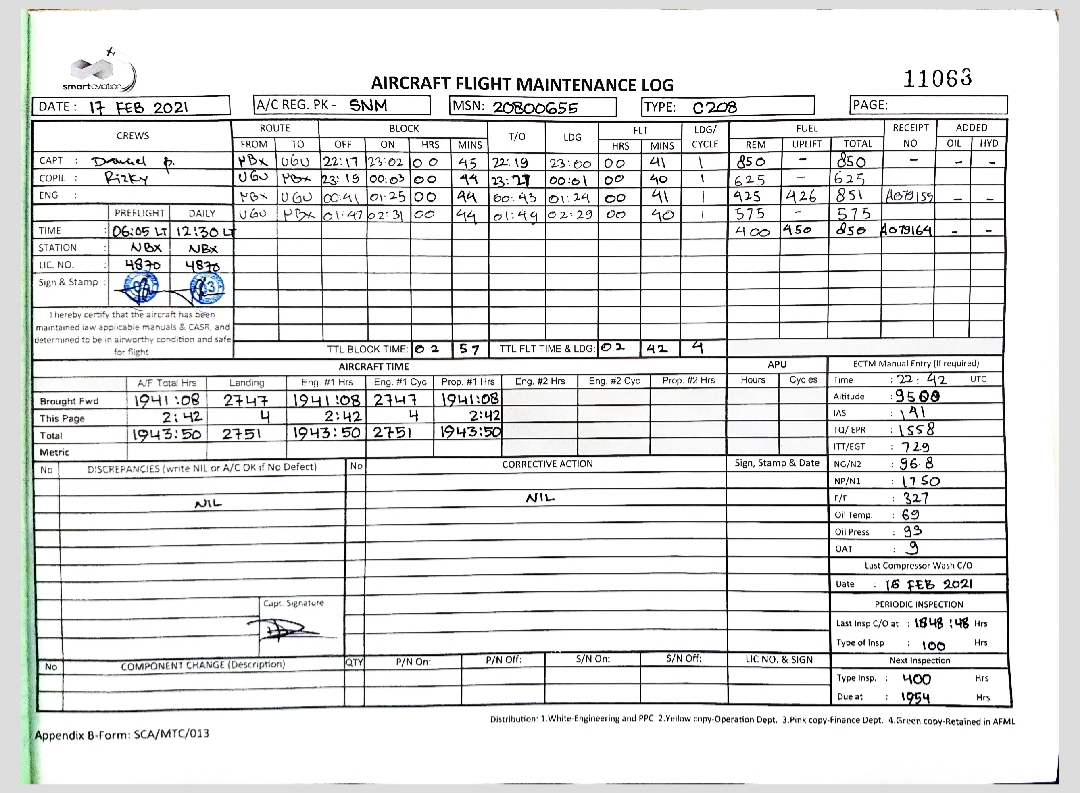 smartaviation
AIRCRAFT FLIGHT MAINTENANCE LOG
11063
DATE : 17 FEB 2021
A/C REG. PK - SNM
MSN: 20800655
TYPE: C208
PAGE:
CREWS ROUTE BLOCK T/O LDG FLT LDG/CYCLE FUEL RECEIPT NO ADDED
FROM TO OFF ON HRS MINS HRS MINS REM UPLIFT TOTAL OIL HYD
CAPT : Daniel p. NBX UGU 22:17 23:02 00 45 22:19 23:00 00 41 1 850 - 850 - -
COPIL : Rizky UGU NBX 23:19 00:03 00 44 23:21 00:01 00 40 1 625 - 625
ENG : NBX UGU 00:41 01:25 00 44 00:43 01:24 00 41 1 425 426 851 A079155 - -
UGU NBX 01:47 02:31 00 44 01:49 02:29 00 40 1 575 - 575
PREFLIGHT DAILY
TIME : 06:05 LT 12:30 LT 400 450 850 A079164 - -
STATION : NBX NBX
LIC. NO. : 4870 4870
Sign & Stamp :
I hereby certify that the aircraft has been
maintained law applicable manuals & CASR, and
determined to be in airworthy condition and safe
for flight
TTL BLOCK TIME: 02 57 TTL FLT TIME & LDG: 02 42 4
AIRCRAFT TIME APU ECTM Manual Entry (If required)
A/F Total Hrs Landing Eng. #1 Hrs Eng. #1 Cyc Prop. #1 Hrs Eng. #2 Hrs Eng. #2 Cyc Prop. #2 Hrs Hours Cycles
Time : 22:42 UTC
Brought Fwd 1941:08 2747 1941:08 2747 1941:08
Altitude : 9500
This Page 2:42 4 2:42 4 2:42
IAS : 141
Total 1943:50 2751 1943:50 2751 1943:50
TQ/EPR : 1558
Metric
ITT/EGT : 729
No DISCREPANCIES (write NIL or A/C OK if No Defect) No CORRECTIVE ACTION Sign, Stamp & Date
NG/N2 : 96.8
NP/N1 : 1750
NIL NIL
F/F : 327
Oil Temp. : 69
Oil Press : 93
OAT : 9
Last Compressor Wash C/O
Date : 16 FEB 2021
Capt. Signature
PERIODIC INSPECTION
Last Insp C/O at : 1848:48 Hrs
Type of Insp : 100 Hrs
No COMPONENT CHANGE (Description) QTY P/N On: P/N Off: S/N On: S/N Off: LIC NO. & SIGN
Next Inspection
Type Insp. : 400 Hrs
Due at : 1954 Hrs
Distribution: 1.White-Engineering and PPC 2.Yellow copy-Operation Dept. 3.Pink copy-Finance Dept. 4.Green copy-Retained in AFML
Appendix B-Form: SCA/MTC/013